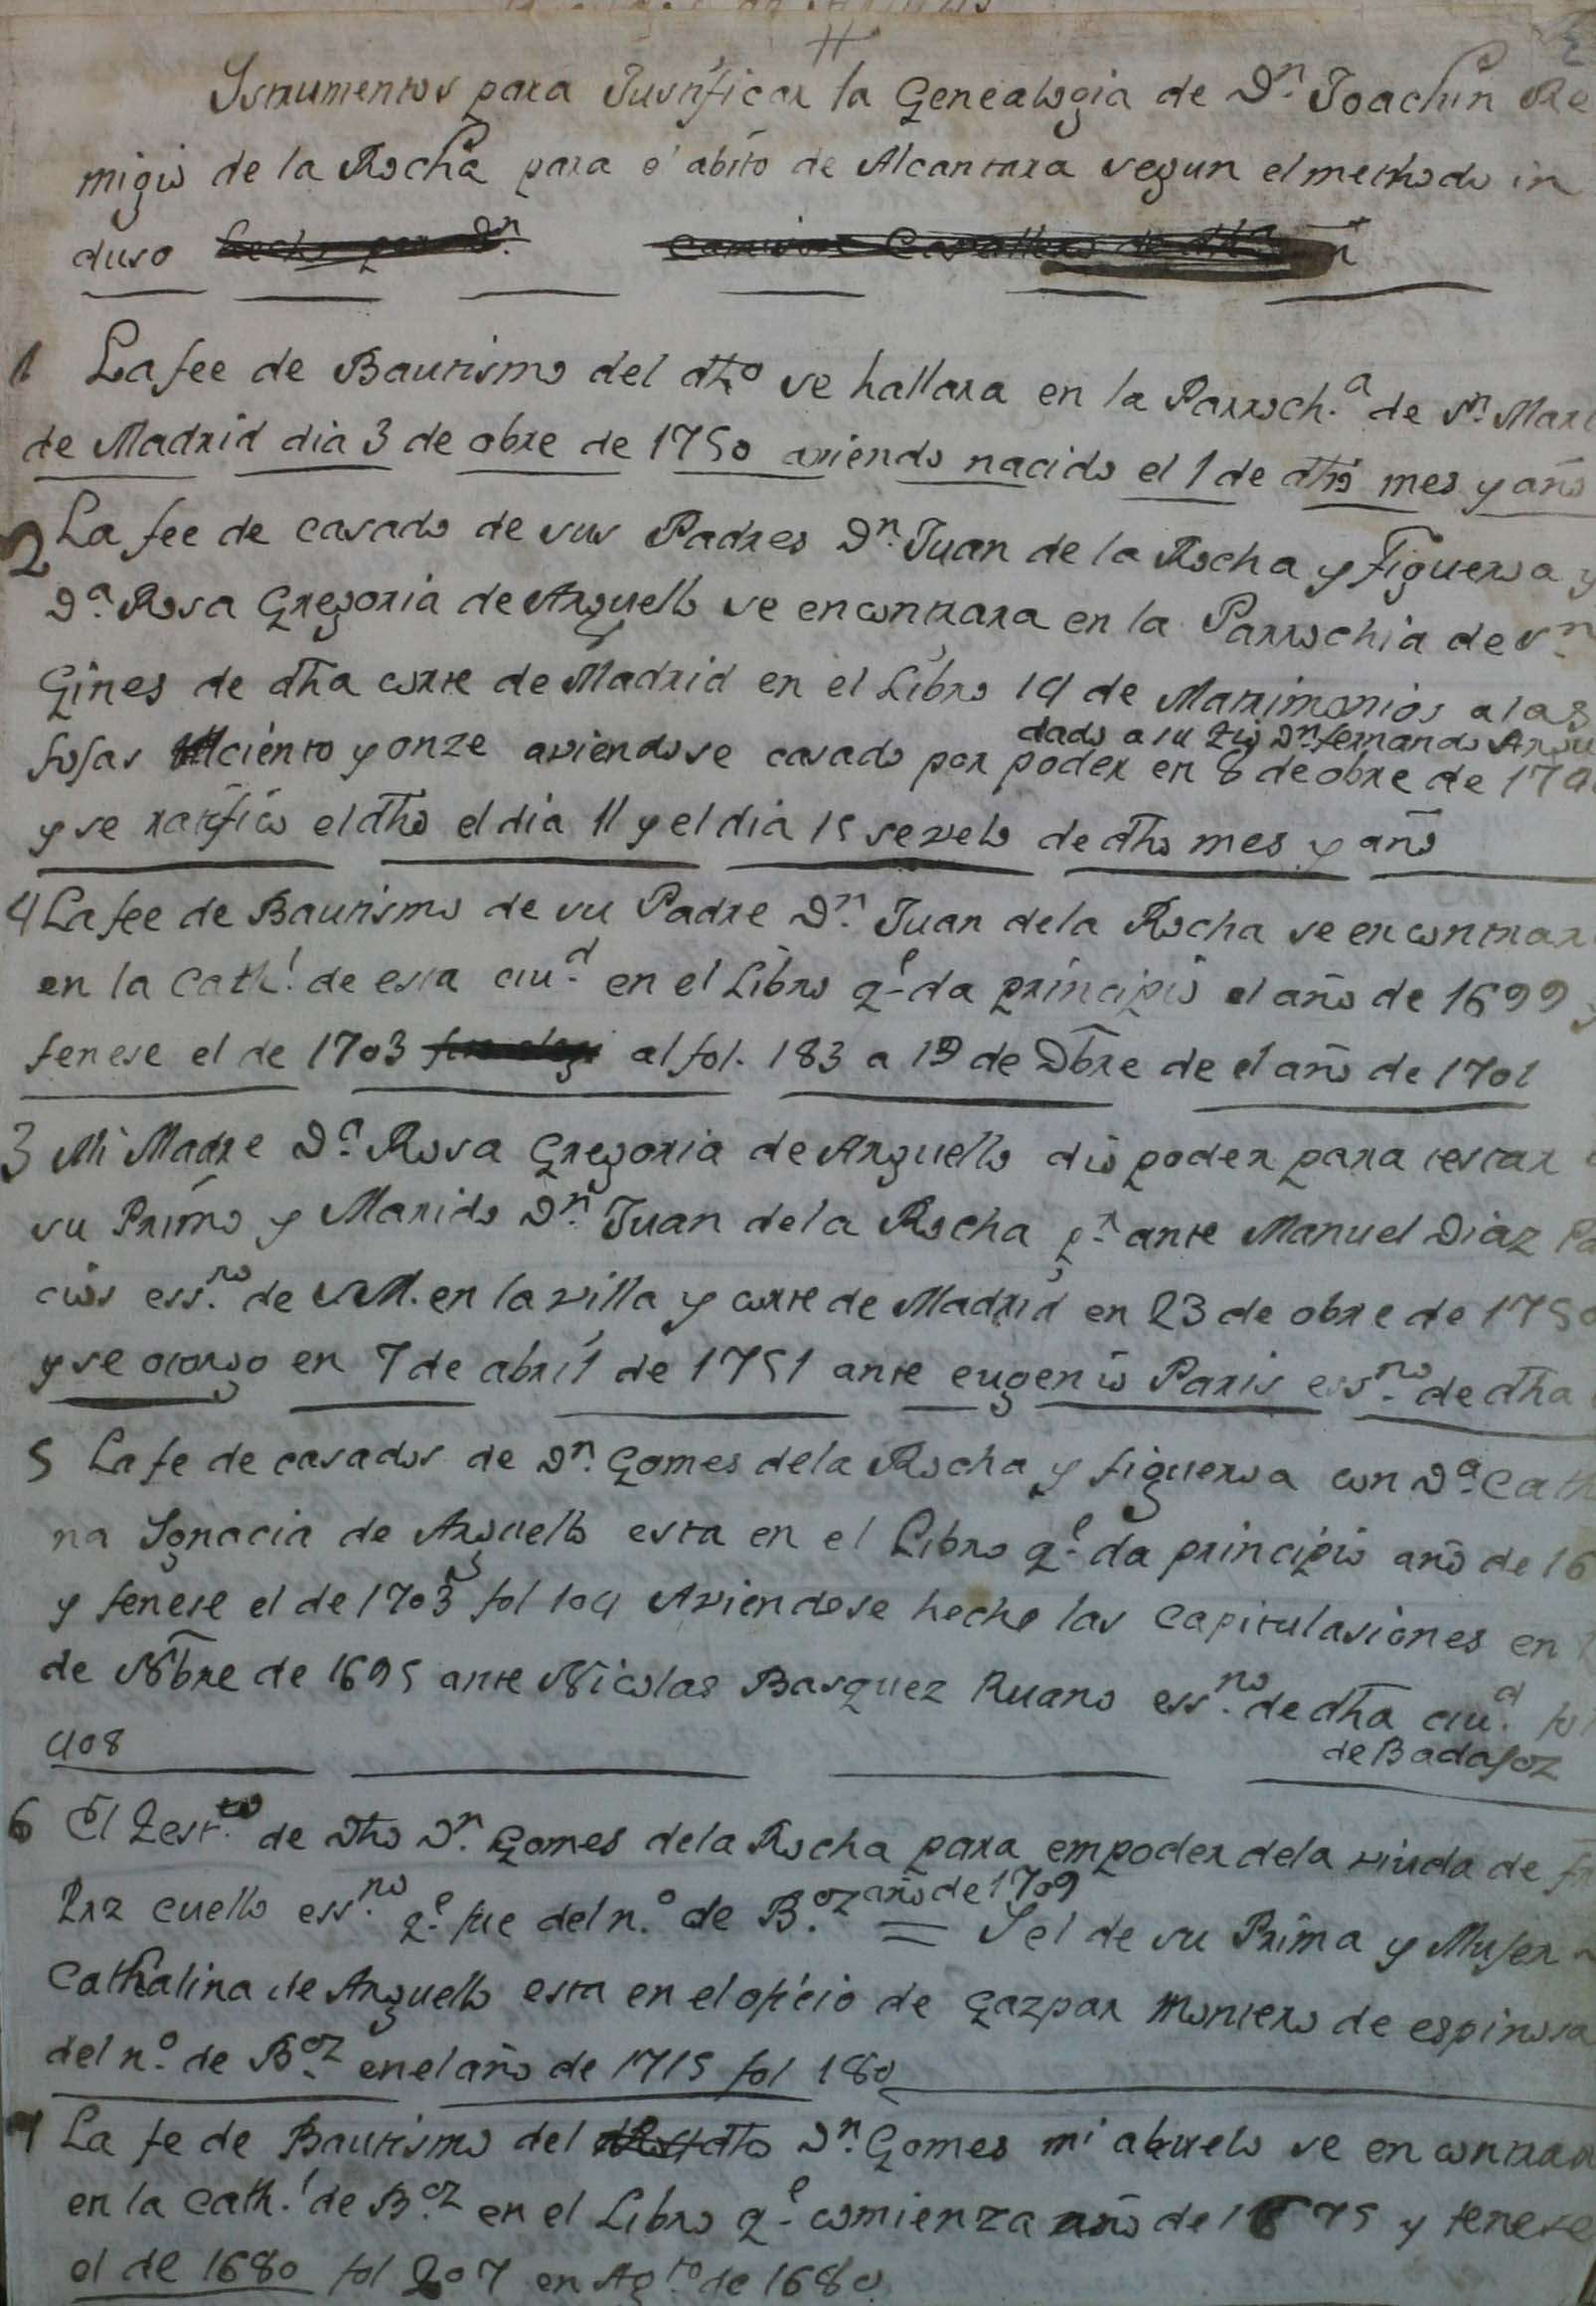 Ystrumentos para Justificar la Genealogia de Dn. Joachin Re
migio de la Rocha para el abito de Alcantara segun el methodo in
cluso
1 La fee de Bautismo del dho se hallara en la Parroch.a de Sn. Mart
de Madrid dia 3 de obre de 1750 aviendo nacido el 1 de dho mes y año
2 La fee de casado de sus Padres Dn. Juan de la Rocha y Figueroa y
Da. Rosa Gregoria de Arguello se encontrara en la Parrochia de Sn.
Gines de dha corte de Madrid en el Libro 14 de Matrimonios a las
fojas ciento y onze aviendose casado por poder dado a su tio Dn. fernando Argu en 8 de obre de 174
y se ratifico el dho el dia 11 y el dia 15 se velo de dho mes y año
4 La fee de Bautismo de su Padre Dn. Juan de la Rocha se encontrar
en la Cath.l de esta ciu.d en el Libro q.e da principio el año de 1699 y
fenese el de 1703 al fol. 183 a 19 de Dbre de el año de 1701
3 Mi Madre Da. Rosa Gregoria de Arguello dio poder para testar a
su Primo y Marido Dn. Juan de la Rocha p.r ante Manuel Diaz Pa
cios ess.no de S.M. en la villa y corte de Madrid en 23 de obre de 1750
y se otorgo en 7 de abril de 1751 ante eugenio Paris ess.no de dha
5 La fe de casados de Dn. Gomes de la Rocha y figueroa con Da. Cath
na Ygnacia de Arguello esta en el Libro q.e da principio año de 16
y fenese el de 1703 fol 104 Aviendose hecho las Capitulasiones en
de Nobre de 1695 ante Nicolas Basquez Ruano ess.no de dha ciu.d fol
408 de Badajoz
6 El Test.to de dho Dn. Gomes de la Rocha para em poder de la viuda de f
Prz cuello ess.no q.e fue del n.o de B.oz año de 1709 = Y el de su Prima y Mujer
Cathalina de Arguello esta en el oficio de Gazpar Montero de espinosa
del n.o de B.oz en el año de 1715 fol 180
7 La fe de Bautismo del dho Dn. Gomes mi abuelo se encontrar
en la Cath.l de B.oz en el Libro q.e comienza año de 1675 y fenese
el de 1680 fol 207 en Ag.to de 1680